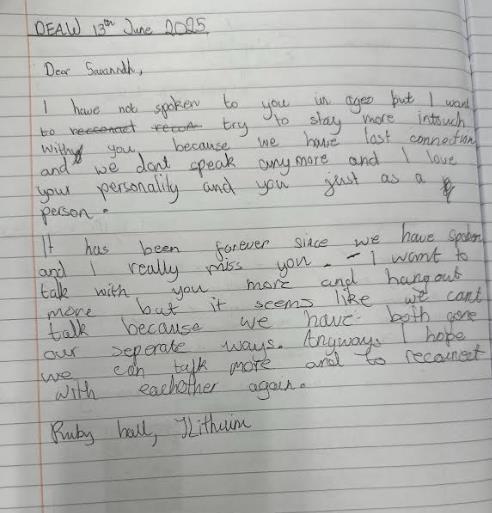 DEAW 13th June 2025
Dear Savannah,
I have not spoken to you in ages but I want
to reconnect recon try to stay more intouch
with you, because we have lost connection
and we dont speak anymore and I love
your personality and you just as a
person.
It has been forever since we have spoken
and I really miss you. - I want to
talk with you more and hangout
more but it seems like we cant
talk because we have both gone
our seperate ways. Anyways I hope
we can talk more and to reconnect
with eachother again.
Ruby hall,